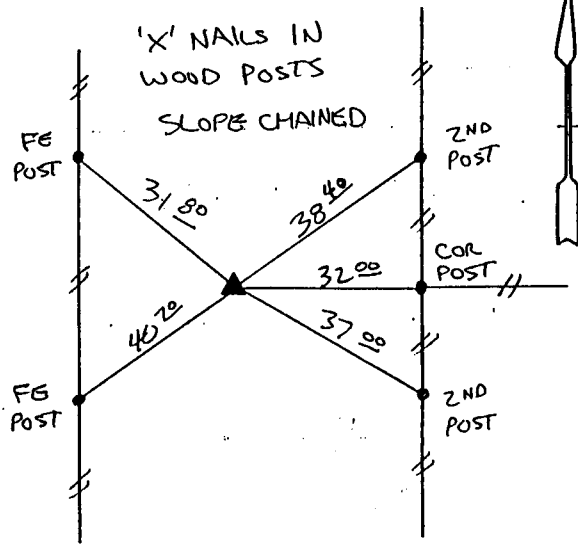 'X' NAILS IN
WOOD POSTS
SLOPE CHAINED
FE
POST
2ND
POST
31 80
38 40
COR
POST
32 00
40 20
37 00
FE
POST
2ND
POST